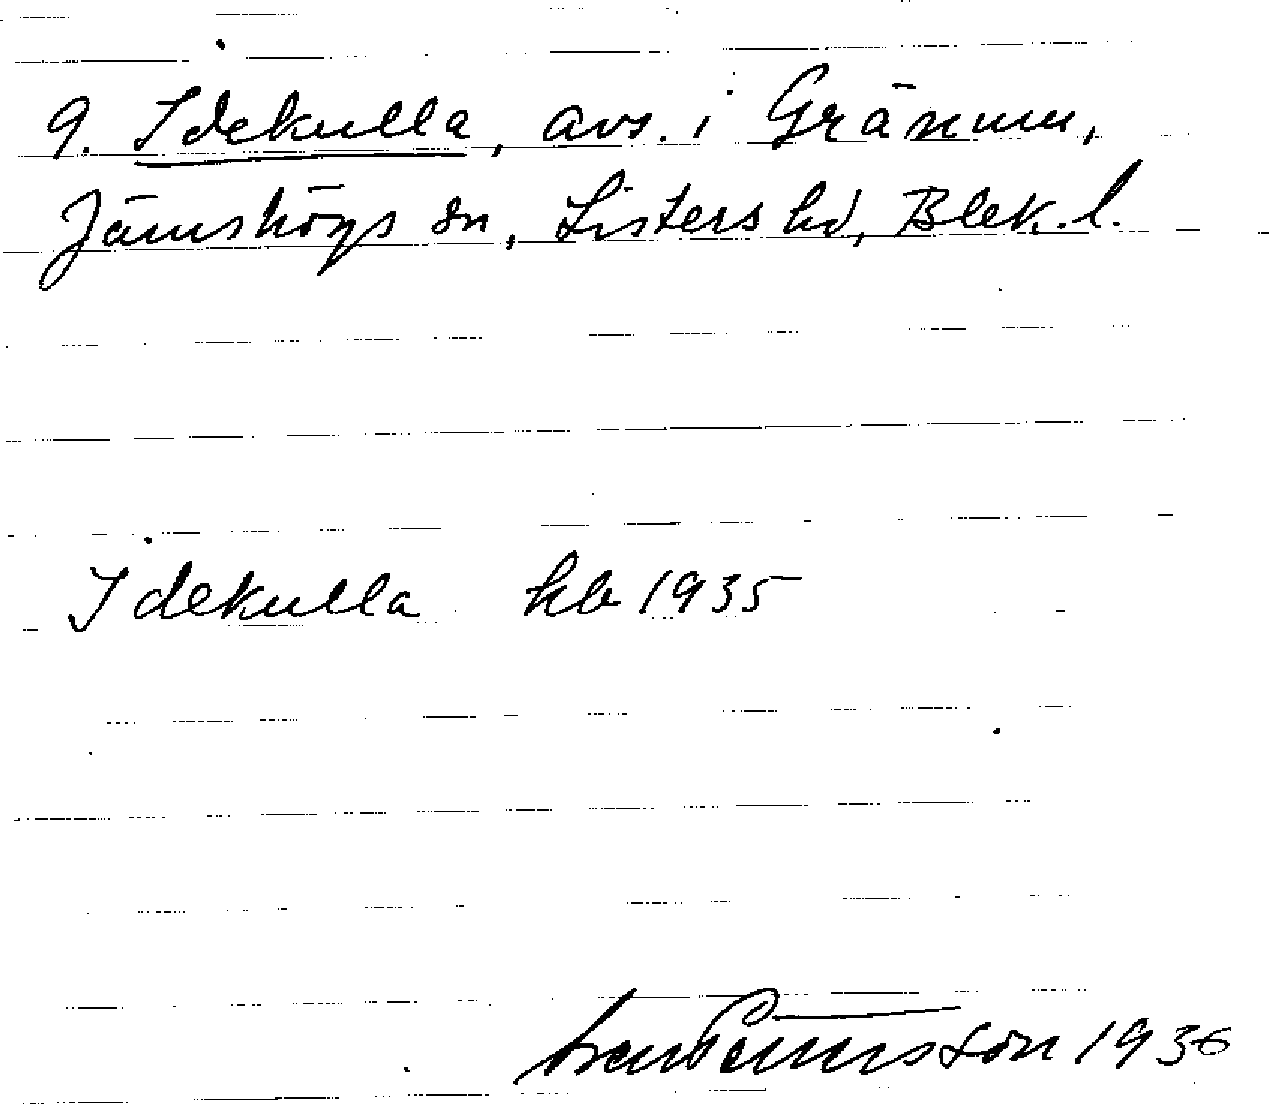 9. Idekulla, avs. i Gränum,
Jämshögs sn, Listers hd, Blek. l.
Idekulla kb 1935
1936